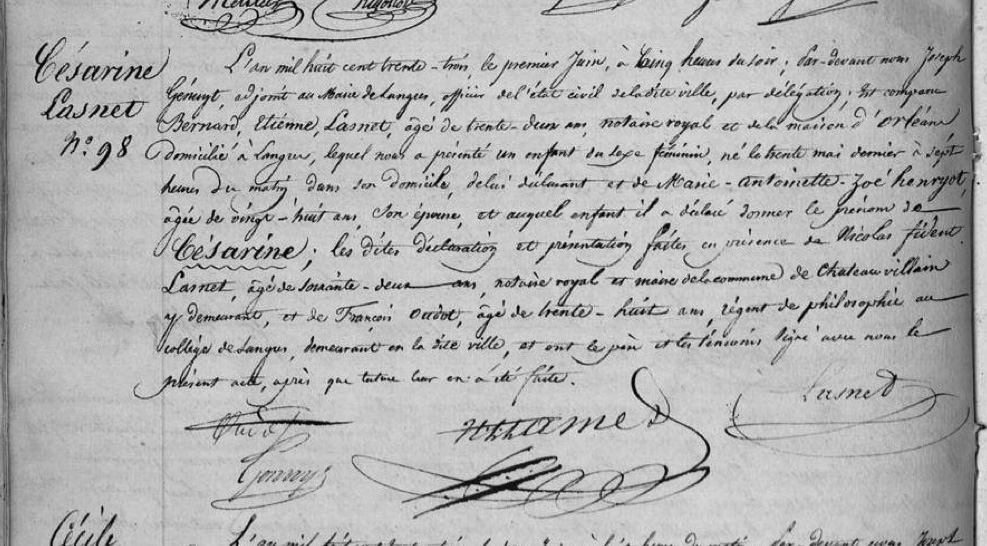 Césarine
Lasnet
N.° 98
L'an mil huit cent trente-trois, le premier Juin, à Cinq heures du soir; par-devant nous Joseph
adjoint au Maire de Langres, officier de l'état civil de la dite ville, par délégation; Est comparu
Bernard, Etienne, Lasnet, âgé de trente-deux ans, notaire royal et de la maison d'Orléans
domicilié à Langres, lequel nous a présenté un enfant du sexe féminin, né le trente mai dernier à sept
heures du matin dans son domicile, de lui déclarant et de Marie-antoinette-Zoé henryot,
âgée de vingt-huit ans, Son épouse, et auquel enfant il a déclaré donner le prénom de
Césarine; les dites déclaration et présentation faites en présence de Nicolas fident
Lasnet, âgé de soixante-deux ans, notaire royal et maire de la commune de Chateauvillain
y demeurant, et de François Oudot, âgé de trente-huit ans, régent de philosophie au
collége de Langres, demeurant en la dite ville, et ont le père et les témoins signé avec nous le
présent acte, après que lecture leur en a été faite.
Lasnet
Cécile
L'an mil
par-devant nous Joseph